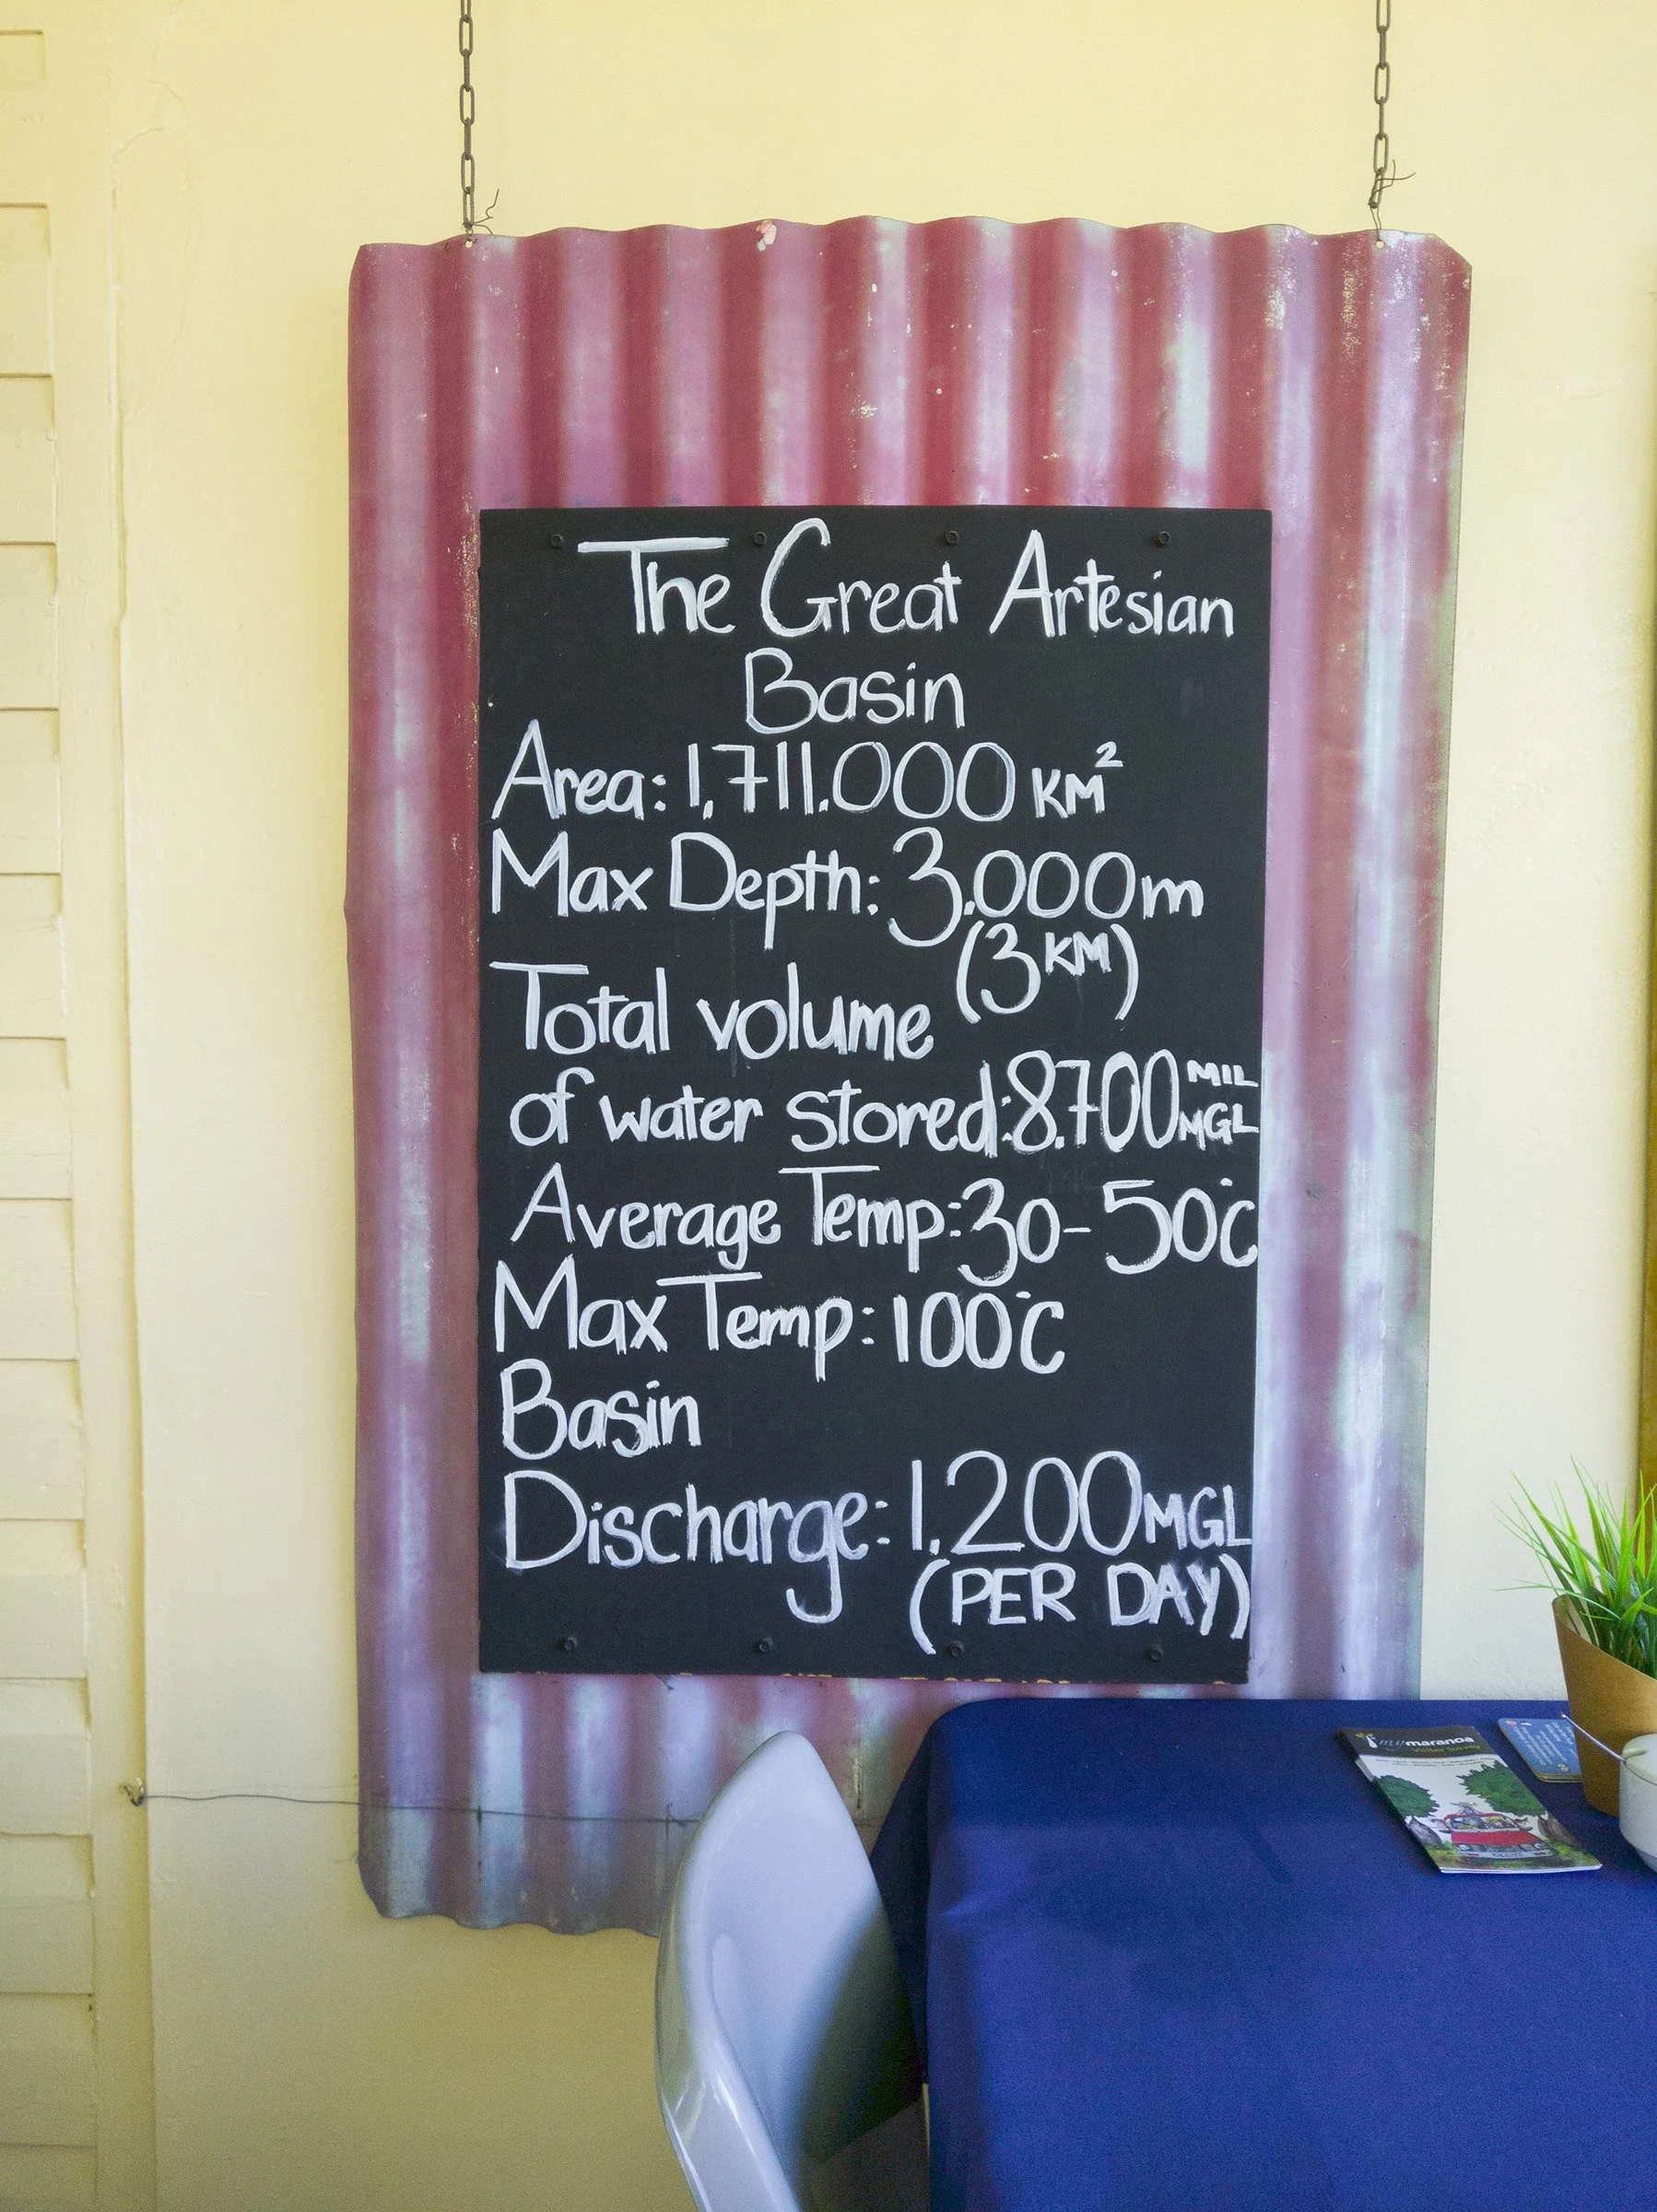 The Great Artesian
Basin
Area: 1,711.000 KM²
Max Depth: 3.000m
(3KM)
Total volume
of water stored: 8.700 MIL
MGL
Average Temp: 30-50°C
Max Temp: 100°C
Basin
Discharge: 1,200 MGL
(PER DAY)
mymaranoa
Visitor Survey